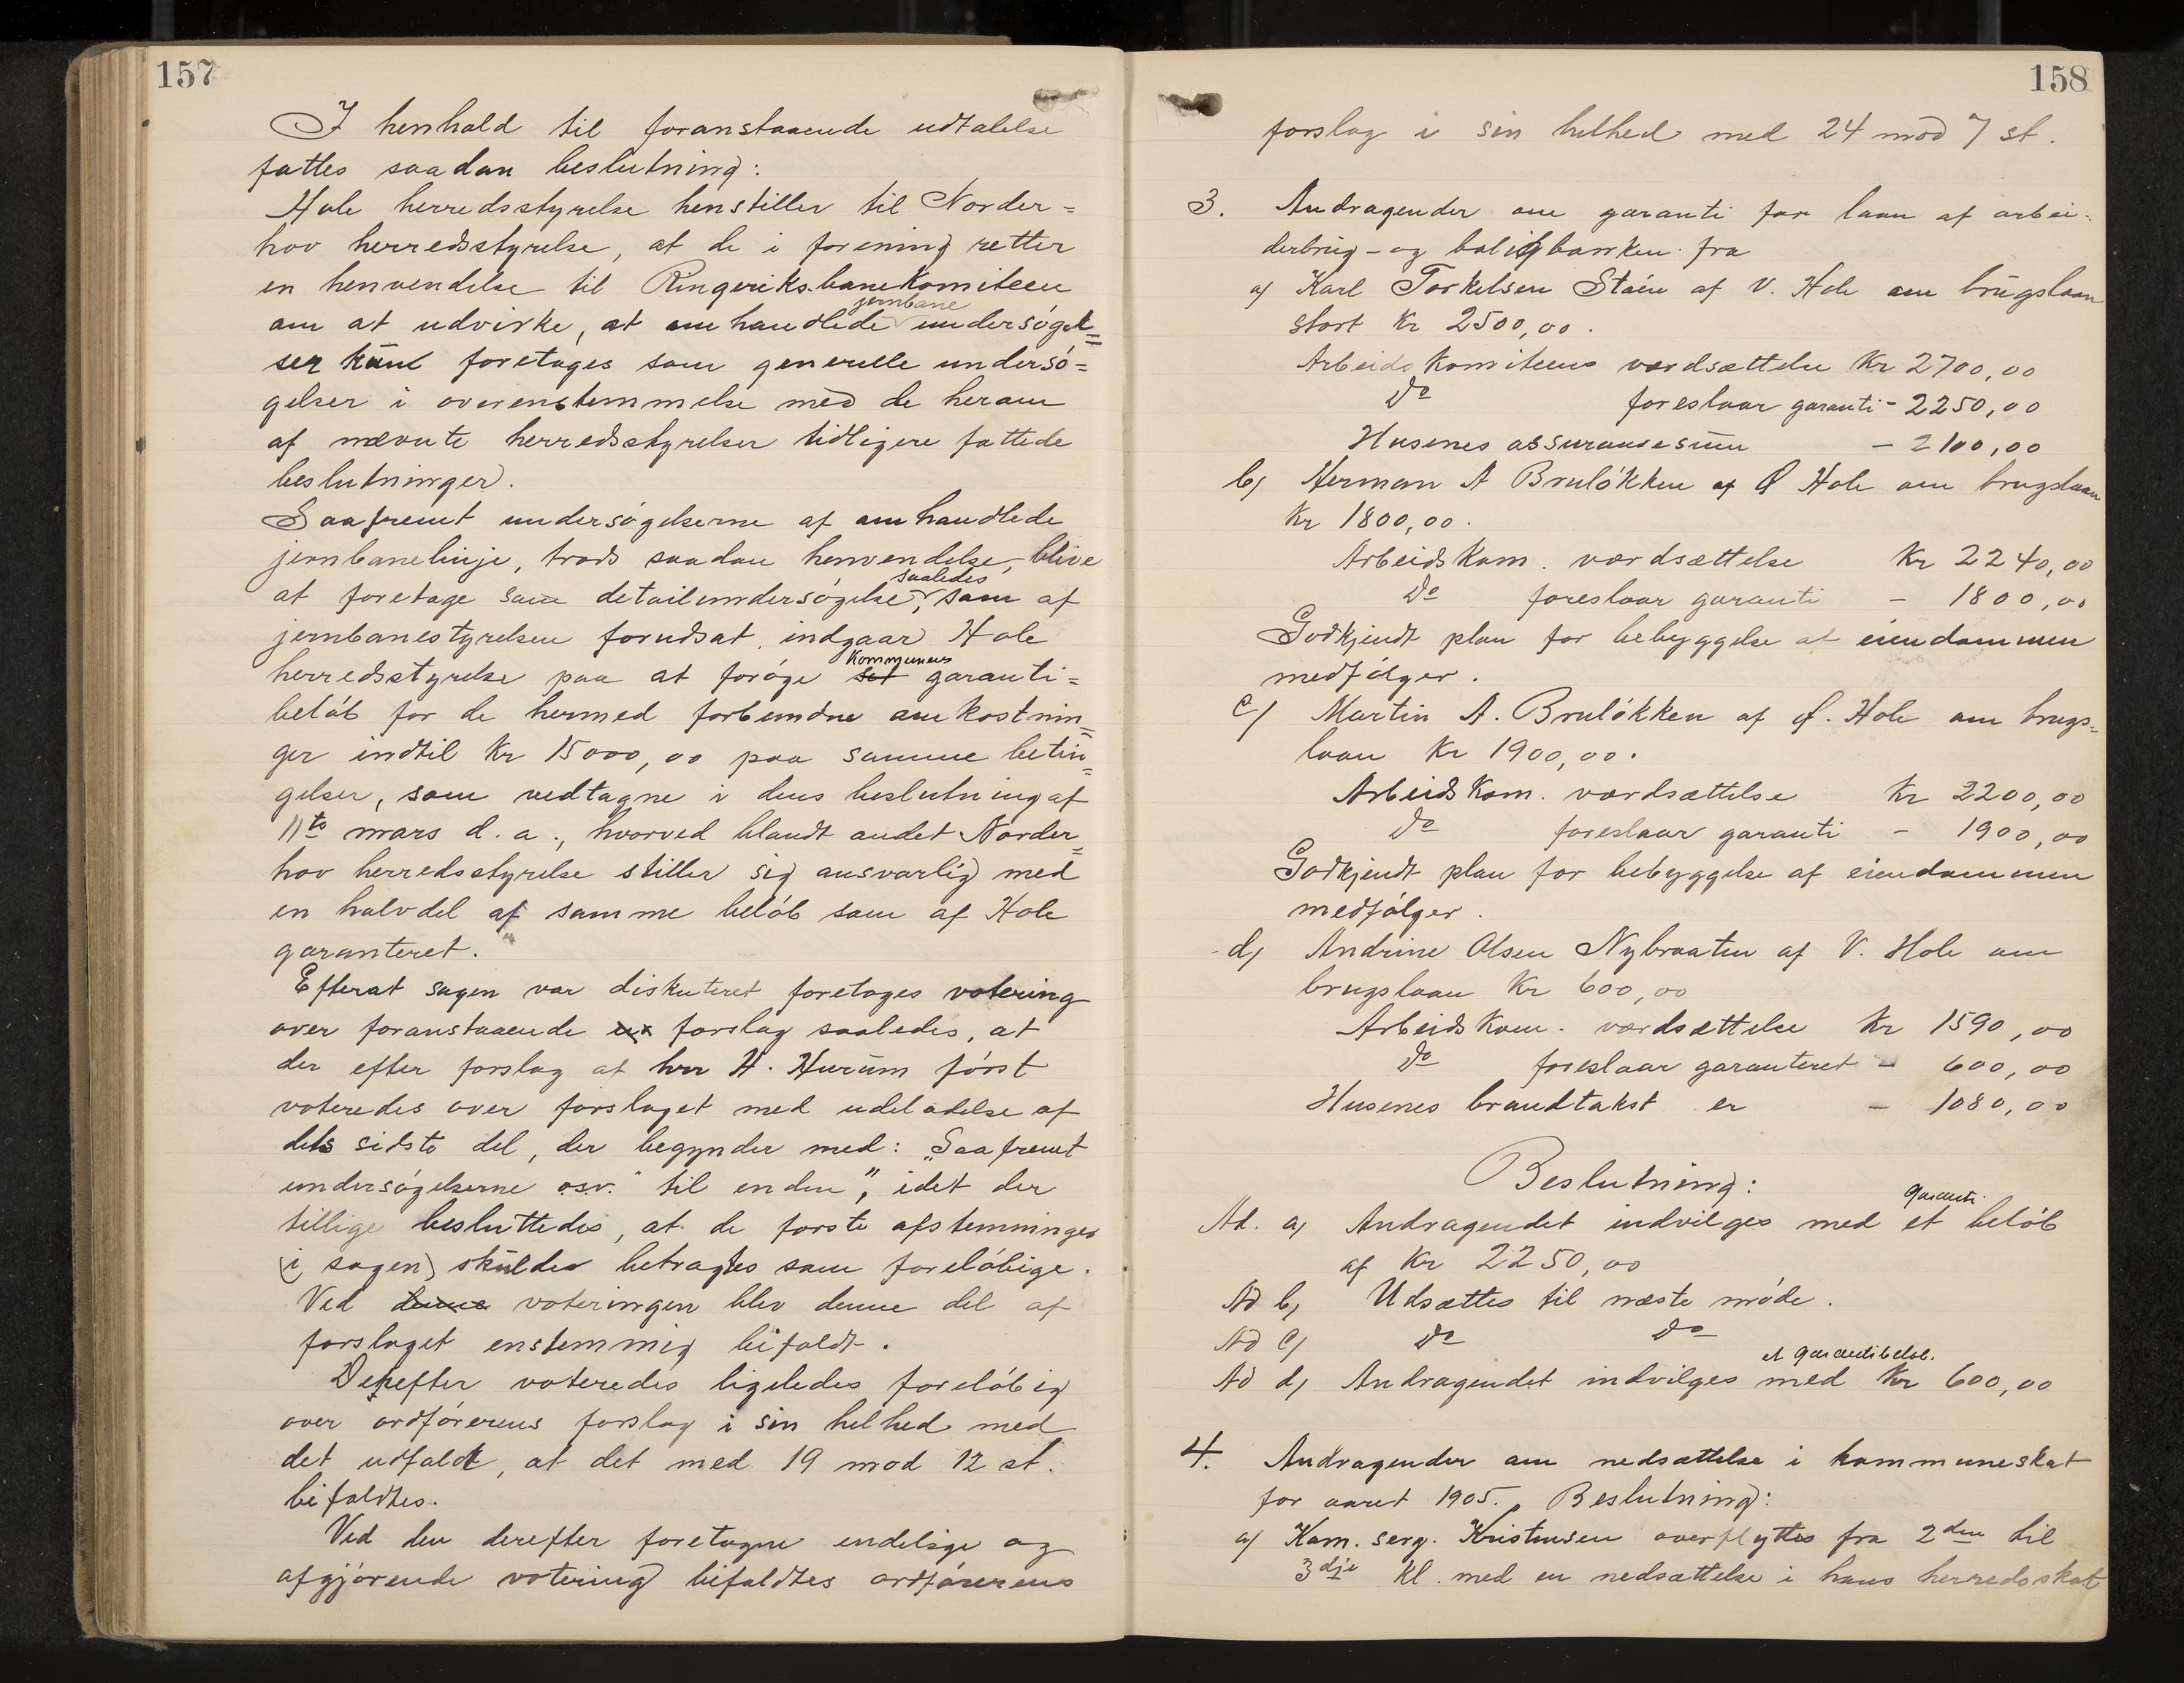 157
I henhold til foranstaaende udtalelse
fattes saadan beslutning:
Hole herredsstyrelse henstiller til Norder=
hov herredsstyrelse, at de i forening retter
en henvendelse til Ringeriksbanekomiteen
jernbane
om at udvirke, at omhandlede undersøgel=
ser kūnd foretages som generelle undersø=
gelser i overenstemmelse med de herom
af nævnte herredsstyrelser tidligere fattede
beslutninger.
Saafremt undersøgelserne af omhandlede
jernbanelinje, trods saadan henvendelse, blive
saaledes
at foretage som detailundersøgelse, som af
jernbanestyrelsen forudsat, indgaar Hole
Kommunens
herredsstyrelse paa at forøge sit garanti=
beløb for de hermed forbundne omkostnin=
ger indtil Kr 15000,00 paa samme betin=
gelser, som vedtagne i dens beslutning af
11te mars d. a., hvorved blandt andet Norder=
hov herredsstyrelse stiller sig ansvarlig med
en halvdel af samme beløb som af Hole
garanteret."
Efterat sagen var diskuteret foretoges votering
over foranstaaende forslag saaledes, at
der efter forslag af hrr H. Hurūm først
voteredes over forslaget med udeladelse af
dets sidste del, der begynder med: „Saafremt
undersøgelserne osv." til enden", idet der
tillige besluttedes, at de første afstemninger
(i sagen) skūlder betragtes som foreløbige.
Ved denne voteringen blev denne del af
forslaget enstemmig bifaldt.
Derefter voteredes ligeledes foreløbig
over ordførerens forslag i sin helhed med
det udfaldt, at det med 19 mod 12 st.
bifaldtes.
Ved den derefter foretagne endelige og
afgjørende votering bifaldtes ordførerens
158
forslag i sin helhed med 24 mod 7 st.
3. Andragender om garanti for laan af arbei=
derbrug- og boligbanken fra
a) Karl Torkelsen Stein af V. Hole om brūgslaan
stort Kr 2500,00.
Arbeidskomiteens værdsættelse Kr 2700,00
Do foreslaar garanti - 2250,00
Husenes assurancesūm - 2100,00
b) Herman A Bruløkken af Ø Hole om brugslaan
Kr 1800,00.
Arbeidskom. værdsættelse Kr 2240,00
Do foreslaar garanti - 1800,00
Godkjendt plan for bebyggelse af eiendommen
medfølger.
c) Martin A. Bruløkken af Ø. Hole om brugs=
laan Kr 1900,00.
Arbeidskom. værdsættelse Kr 2200,00
Do foreslaar garanti - 1900,00
Godkjendt plan for bebyggelse af eiendommen
medfølger.
d) Andrine Olsen Nybraaten af V. Hole om
brugslaan Kr 600,00
Arbeidskom. værdsættelse Kr 1590,00
Do foreslaar garanteret - 600,00
Husenes brandtakst er - 1080,00
Beslutning:
garanti
Ad. a) Andragendet indvilges med et beløb
af Kr 2250,00
Ad b) Udsættes til næste møde.
Ad c) Do Do
et garantibeløb.
Ad d) Andragendet indvilges med Kr 600,00
4. Andragender om nedsættelse i kommuneskat
for aaret 1905. Beslutning:
a) Kom. serg. Kristensen overflyttes fra 2den til
3dje kl. med en nedsættelse i hans herredsskat